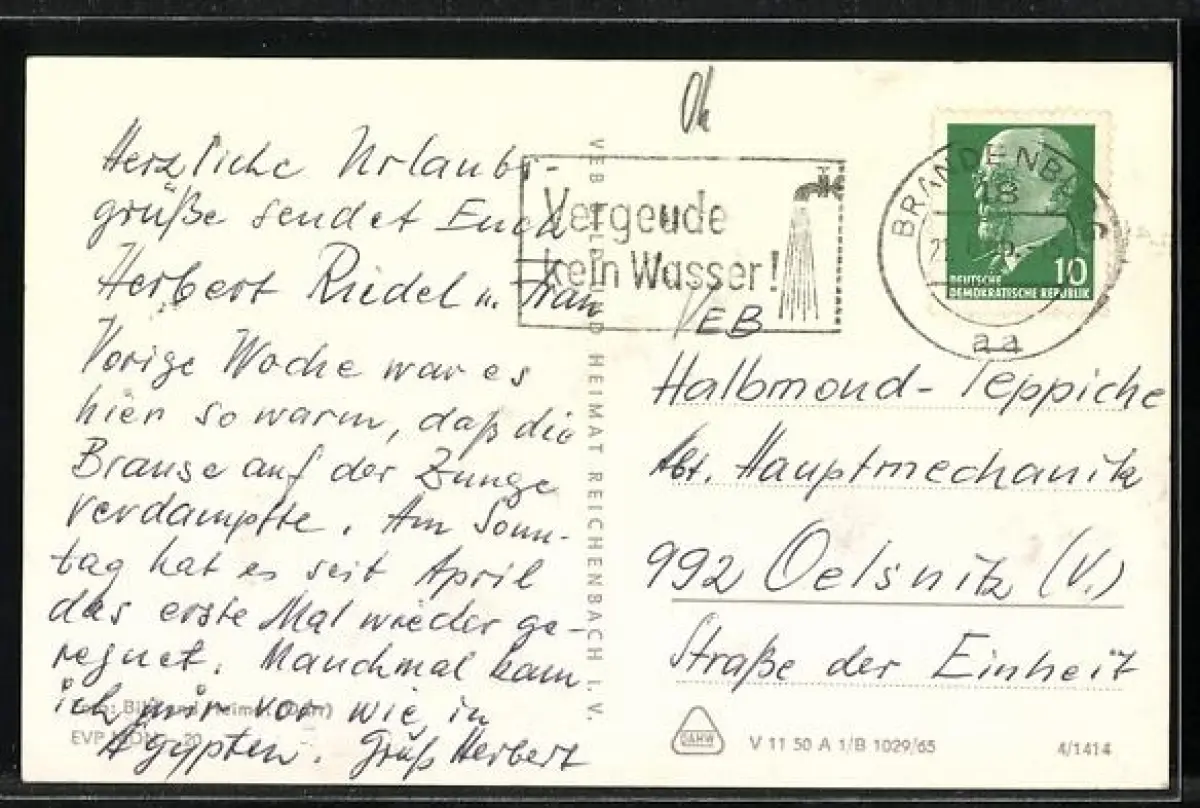 Herzliche Urlaubs-
grüße sendet Euch
Herbert Riedel u. Frau
Vorige Woche war es
hier so warm, daß die
Brause auf der Zunge
verdampfte. Am Sonn-
tag hat es seit April
das erste Mal wieder ge-
regnet. Manchmal kam
ich mir vor wie in
Ägypten. Gruß Herbert
EVP
VEB BILD UND HEIMAT REICHENBACH I. V.
Vergeude
kein Wasser!
BRANDENBURG
18
aa
10
DEUTSCHE
DEMOKRATISCHE REPUBLIK
VEB
Halbmond-Teppiche
Abt. Hauptmechanik
992 Oelsnitz (V.)
Straße der Einheit
V 11 50 A 1/B 1029/65
4/1414